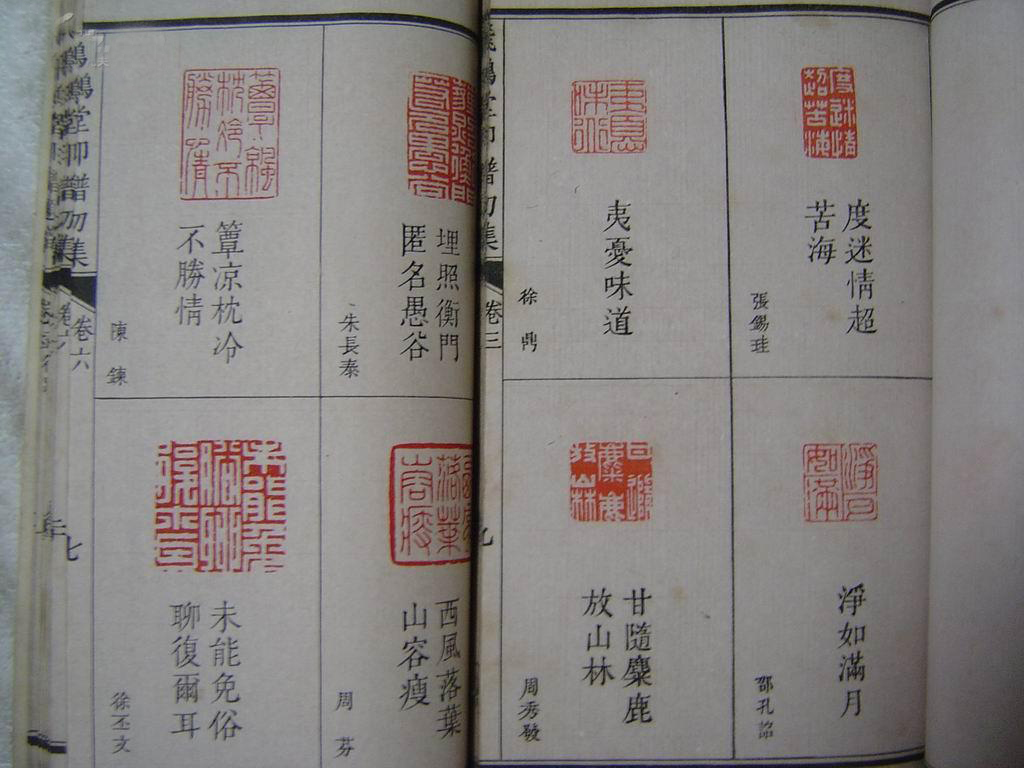 度迷情超
苦海
張錫珪
淨如滿月
邵孔詔
夷憂味道
徐鼎
甘隨麋鹿
放山林
周秀發
鶴堂印譜初集
卷三
九
埋照衡門
匿名愚谷
朱長泰
西風落葉
山容瘦
周芬
簟凉枕冷
不勝情
陳鍊
未能免俗
聊復爾耳
徐丕文
鶴堂印譜初集
卷六
七